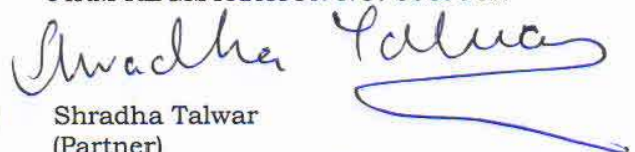 Shradha Talwar
Shradha Talwar
(Partner)